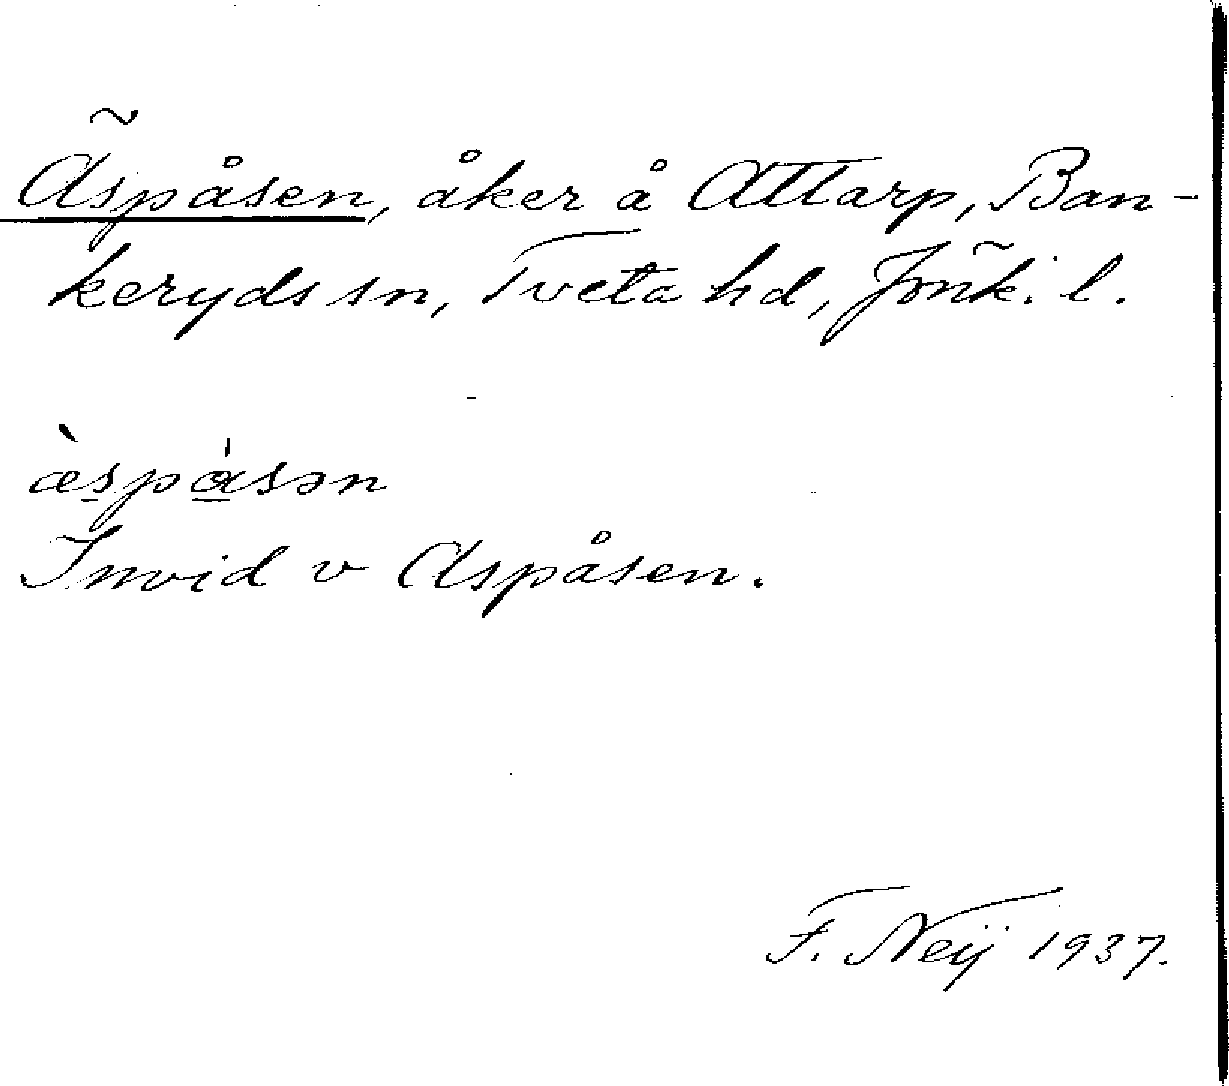 Äspåsen, åker å Attarp, Ban-
keryds sn, Tveta hd, Jönk. l.
æ̀spɑ̀sən
Invid v Aspåsen.
F. Neij 1937.